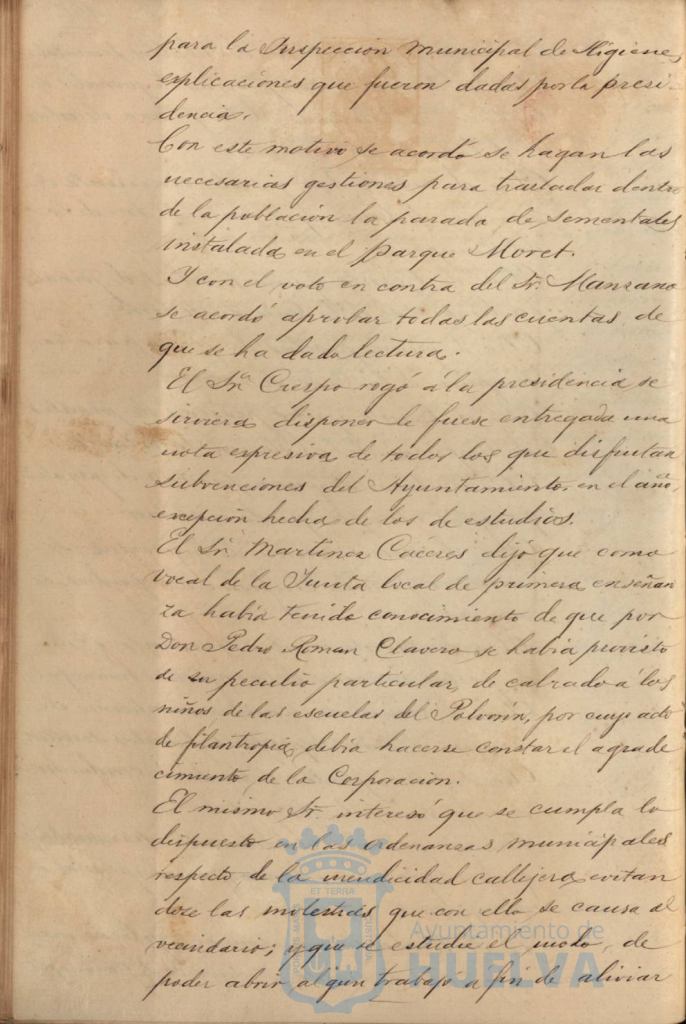 para la Inspeccion municipal de Higiene,
explicaciones que fueron dadas por la presi-
dencia.
Con este motivo se acordó se hagan las
necesarias gestiones para trasladar dentro
de la población la parada de sementales
instalada en el parque Moret.
Y con el voto en contra del Sr. Manzano
se acordó aprobar todas las cuentas de
que se ha dado lectura.
El Sr. Crespo rogó á la presidencia se
sirviera disponer le fuese entregada una
nota expresiva de todos los que disfrutan
subvenciones del Ayuntamiento, en el año,
excepción hecha de los de estudios.
El Sr. Martinez Cáceres dijó que como
vocal de la Junta local de primera enseñan
za habia tenido conocimiento de que por
Don Pedro Roman Clavero se habia provisto
de su peculio particular, de calzado á los
niños de las escuelas del Polvorin, por cuyo acto
de filantropia debia hacerse constar el agrade
cimiento de la Corporacion.
El mismo Sr. interesó que se cumpla lo
dispuesto en las ordenanzas municipales
respecto de la mendicidad callejera evitan
dose las molestias que con ello se causa al
vecindario; y que se estudie el modo de
poder abrir algun trabajo a fin de aliviar
ET TERRA
Ayuntamiento de
HUELVA